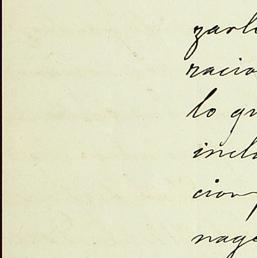 zarl
racio
lo qu
incl
cion
nage